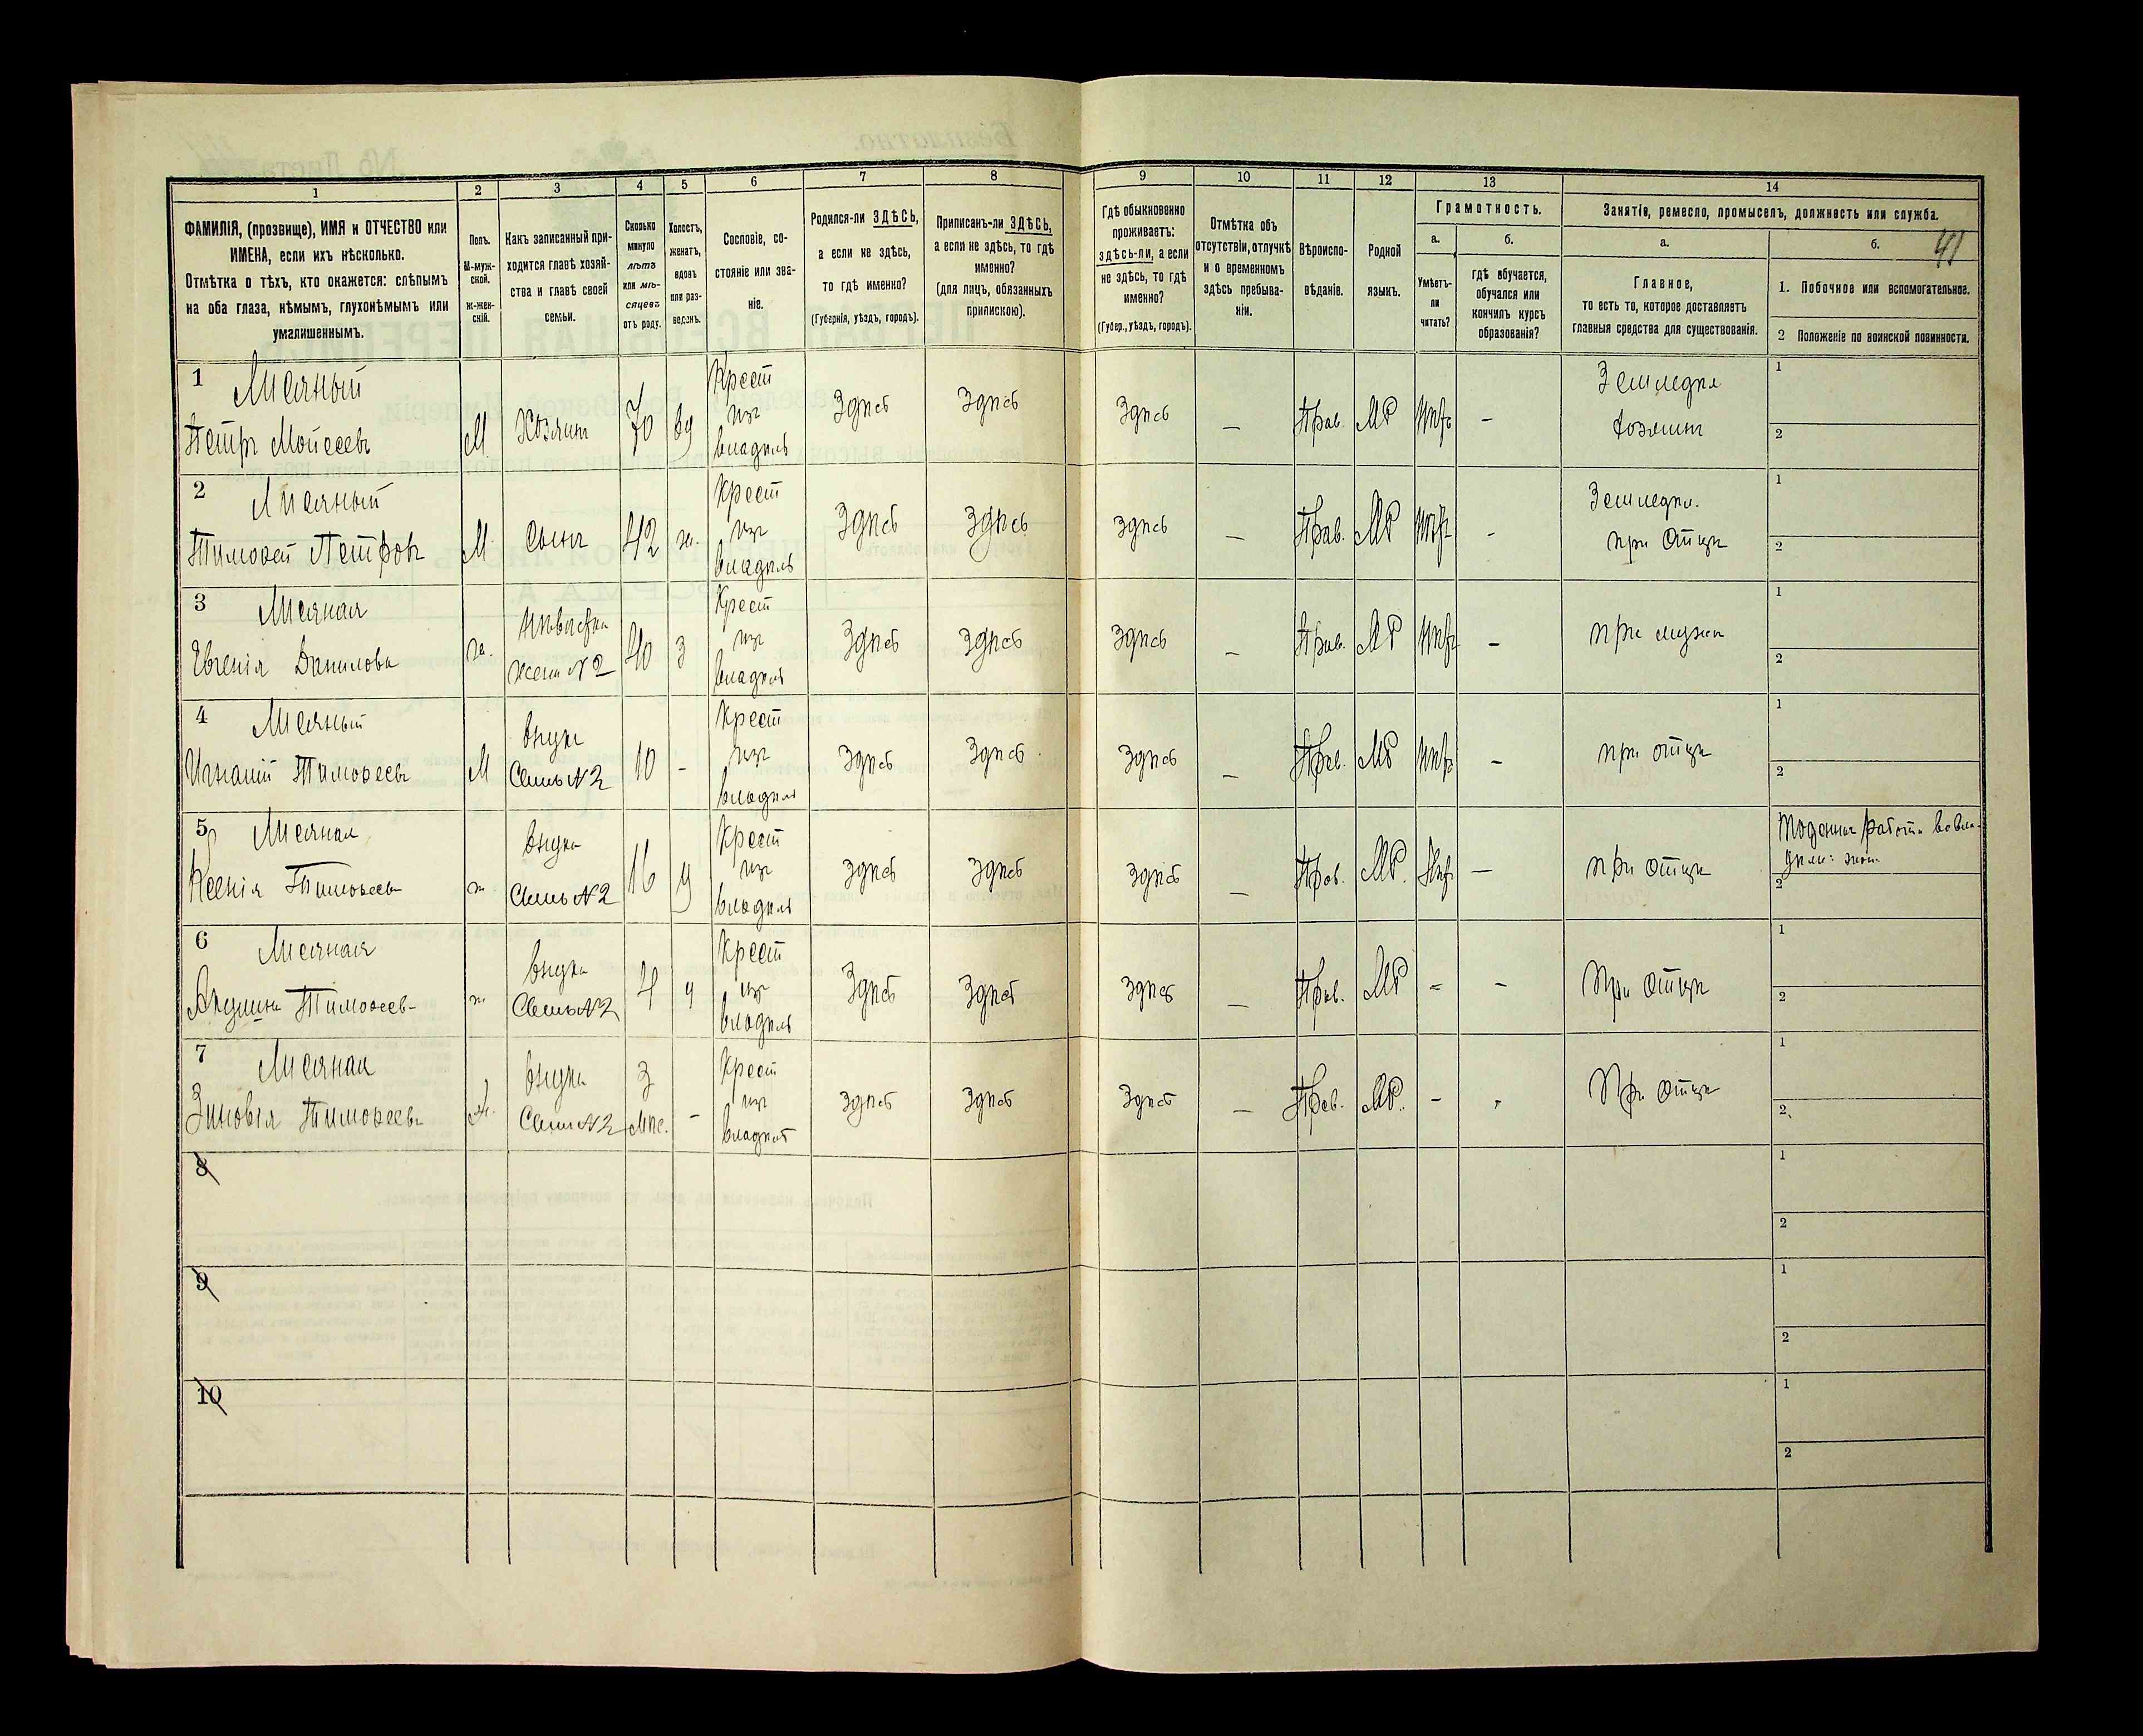 1 2 3 4 5 6 7 8 9 10 11 12 13 14
ФАМИЛІЯ, (прозвище), ИМЯ и ОТЧЕСТВО или
ИМЕНА, если ихъ нѣсколько.
Отмѣтка о тѣхъ, кто окажется: слѣпымъ
на оба глаза, нѣмымъ, глухонѣмымъ или
умалишеннымъ.
Полъ.
М-муж-
ской.
Ж-жен-
скій.
Какъ записанный при-
ходится главѣ хозяй-
ства и главѣ своей
семьи.
Сколько
минуло
лѣтъ
или мѣ-
сяцевъ
отъ роду.
Холостъ,
женатъ,
вдовъ
или раз-
веденъ.
Сословіе, со-
стояніе или зва-
ніе.
Родился-ли ЗДѢСЬ,
а если не здѣсь,
то гдѣ именно?
(Губернія, уѣздъ, городъ).
Приписанъ-ли ЗДѢСЬ,
а если не здѣсь, то гдѣ
именно?
(для лицъ, обязанныхъ
припискою).
Гдѣ обыкновенно
проживаетъ:
здѣсь-ли, а если
не здѣсь, то гдѣ
именно?
(Губер., уѣздъ, городъ).
Отмѣтка объ
отсутствіи, отлучкѣ
и о временномъ
здѣсь пребыва-
ніи.
Вѣроиспо-
вѣданіе.
Родной
языкъ.
Грамотность.
а.
Умѣетъ-
ли
читать?
б.
гдѣ обучается,
обучался или
кончилъ курсъ
образованія?
Занятіе, ремесло, промыселъ, должность или служба.
а.
Главное,
то есть то, которое доставляетъ
главныя средства для существованія.
б.
41
1. Побочное или вспомогательное.
2 Положеніе по воинской повинности.
1
Петръ Мойсеевъ
М
Хозяинъ
70
вд
Крест
изъ
владѣль
Здѣсь
Здѣсь
Здѣсь
—
Прав.
МР
Нѣтъ
-
Земледѣл
хозяинъ
1
2
2
Тимофей Петровъ
М
Сынъ
42
ж.
Крест
изъ
владѣль
Здѣсь
Здѣсь
Здѣсь
—
Прав.
МР
Нѣтъ
-
Земледѣл.
при Отцѣ
1
2
3
Евгенія Данилова
ж.
Невѣстка
жена №2
40
З
Крест
изъ
владѣль
Здѣсь
Здѣсь
Здѣсь
—
Прав.
МР
Нѣтъ
-
при мужѣ
1
2
4
Игнатій Тимофеевъ
М
Внукъ
Сынъ №2
10
-
Крест
изъ
владѣль
Здѣсь
Здѣсь
Здѣсь
—
Прав.
МР
Нѣтъ
-
при отцѣ
1
2
5
Ксенія Тимофеев
ж
Внука
16
Крест
изъ
владѣль
Здѣсь
Здѣсь
Здѣсь
—
Прав.
МР.
Нѣт
—
при отцѣ
2
6
Акулина Тимофеев-
ж
Внука
4
Крест
изъ
владѣль
Здѣсь
Здѣсь
Здѣсь
—
Прав.
МР
-
-
При Отцѣ
1
2
7
Зиновія Тимофеев
ж.
Внука
3
Мѣс.
-
Крест
изъ
владѣль
Здѣсь
Здѣсь
Здѣсь
—
Прав.
МР.
-
При Отцѣ
1
2
8
1
2
9
1
2
10
1
2